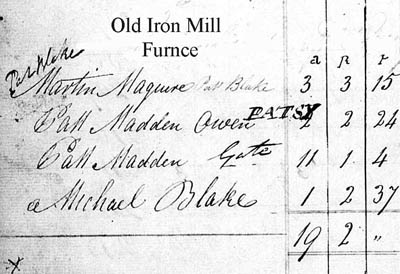 Old Iron Mill
Furnce
Pat Blake
a R r
Martin Maguire Patt Blake 3 3 15
Patt Madden Owen PATSY 2 2 24
Patt Madden Gate 11 1 4
a Michael Blake 1 2 37
19 2 "
x